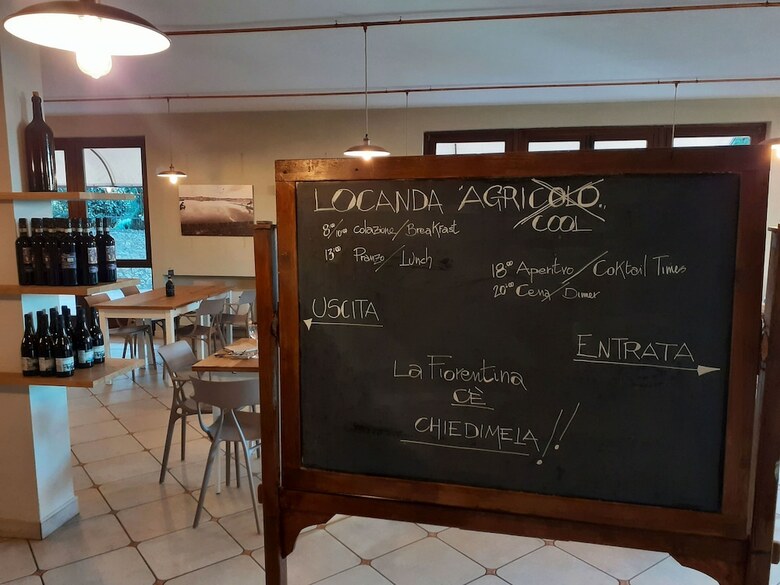 LOCANDA "AGRICOLO.,
COOL
8°°/10°° colazione/Breakfast
13°° Pranzo/Lunch
18°° Aperitvo/Coktail Times
20°° Cena/Dimer
USCITA
ENTRATA
La Fiorentina
C'È
CHIEDIMELA!!